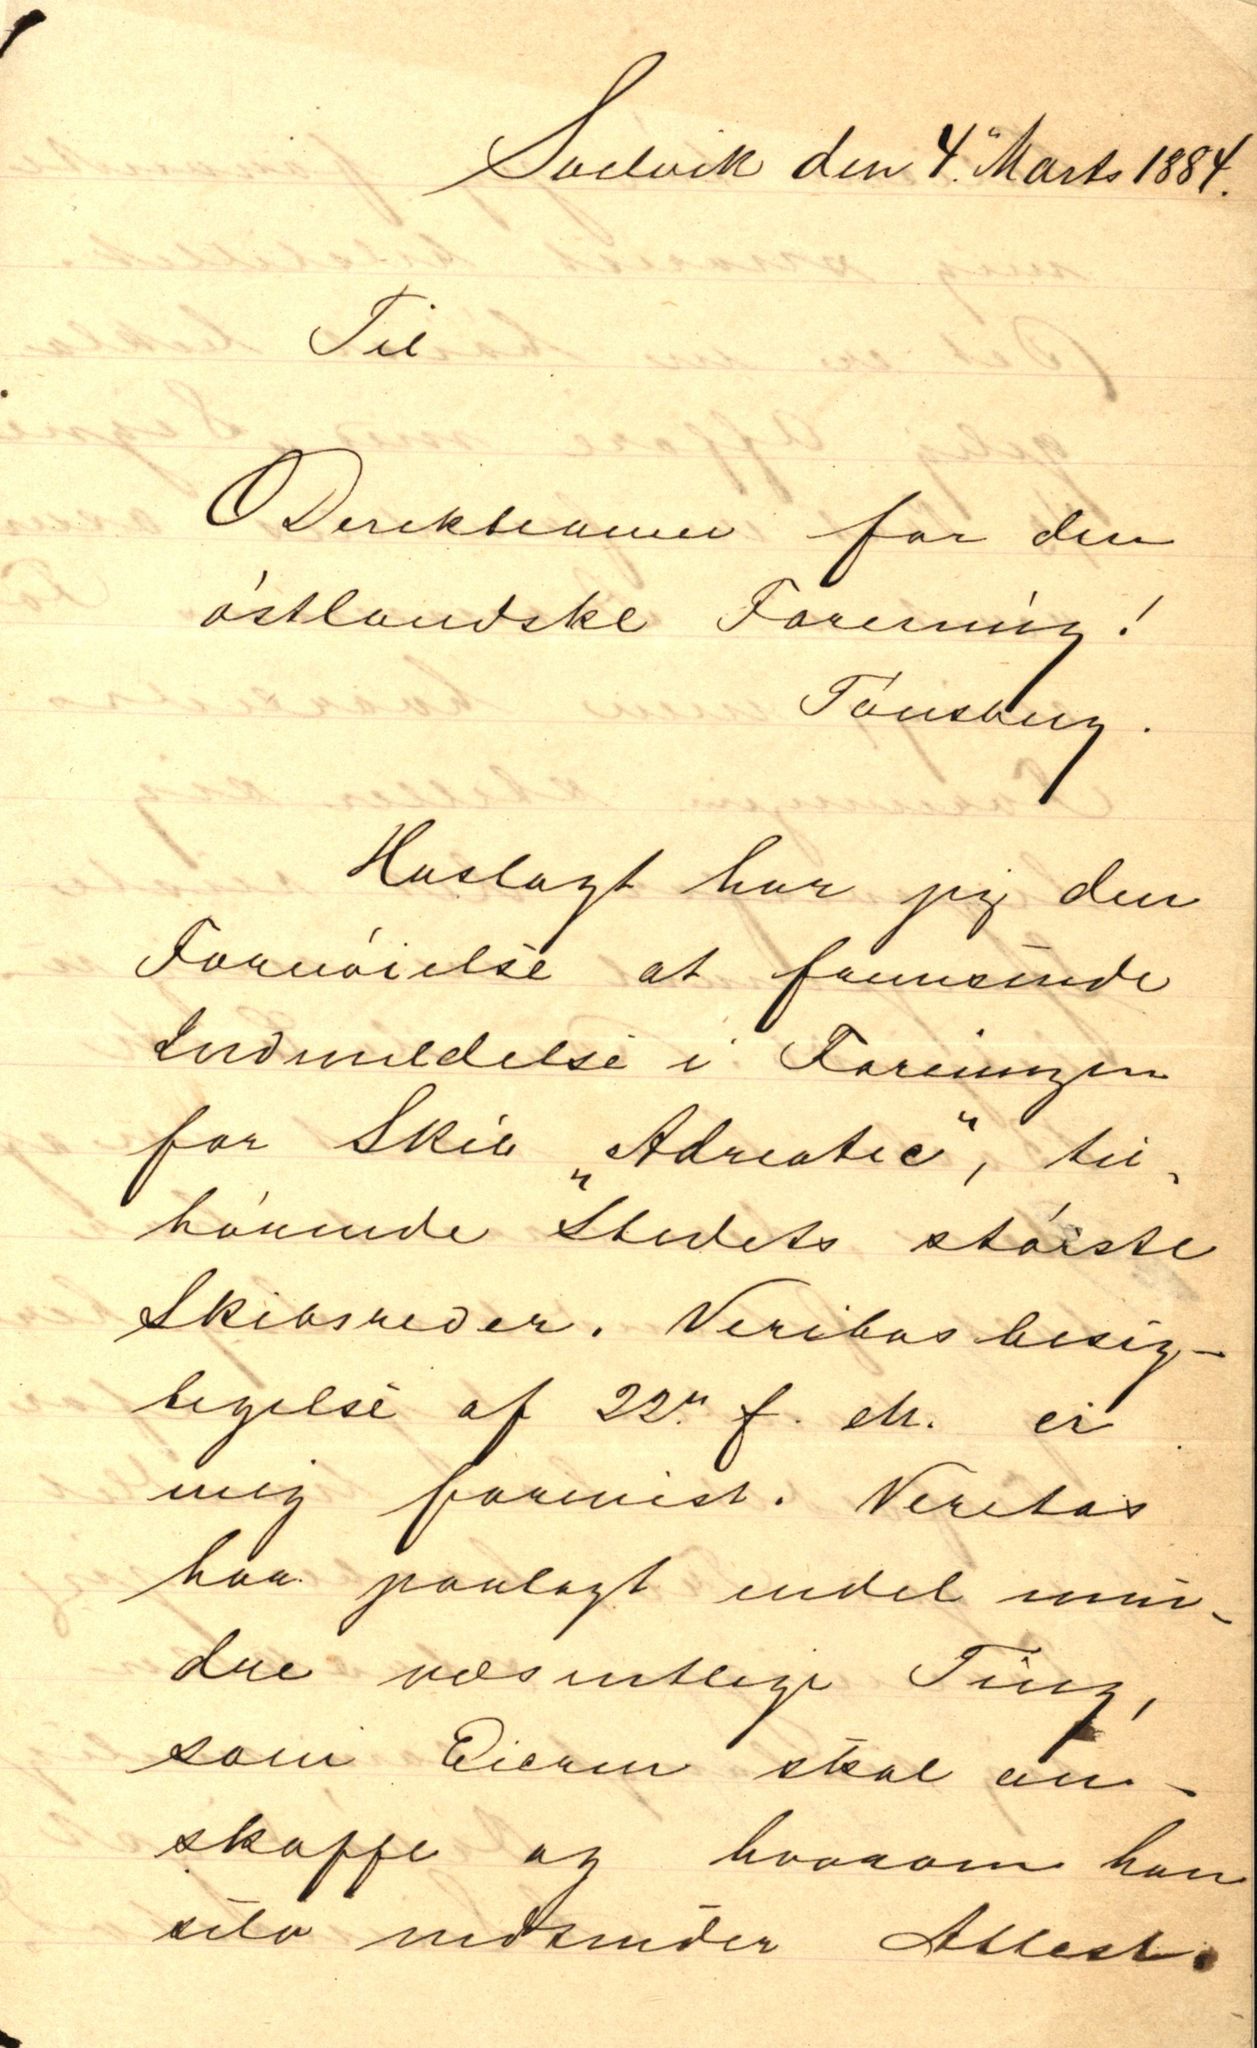 Svelvik den 4.de Marts 1884.
Til
Direktionen for den
østlandske Forening!
Tønsberg.
Hoslagt har jeg den
Fornøielse at fremsende
Indmeldelse i Foreningen
for Skib „Adreatic“, til-
hørende Stedets største
Skibsreder. Veritasbesig-
tigelse af 22de f. M. er
mig forevist. Veritas
har paalagt endel min-
dre væsentlige Ting,
som Eieren skal an-
skaffe og hvorom han
selv nedsender Attest.